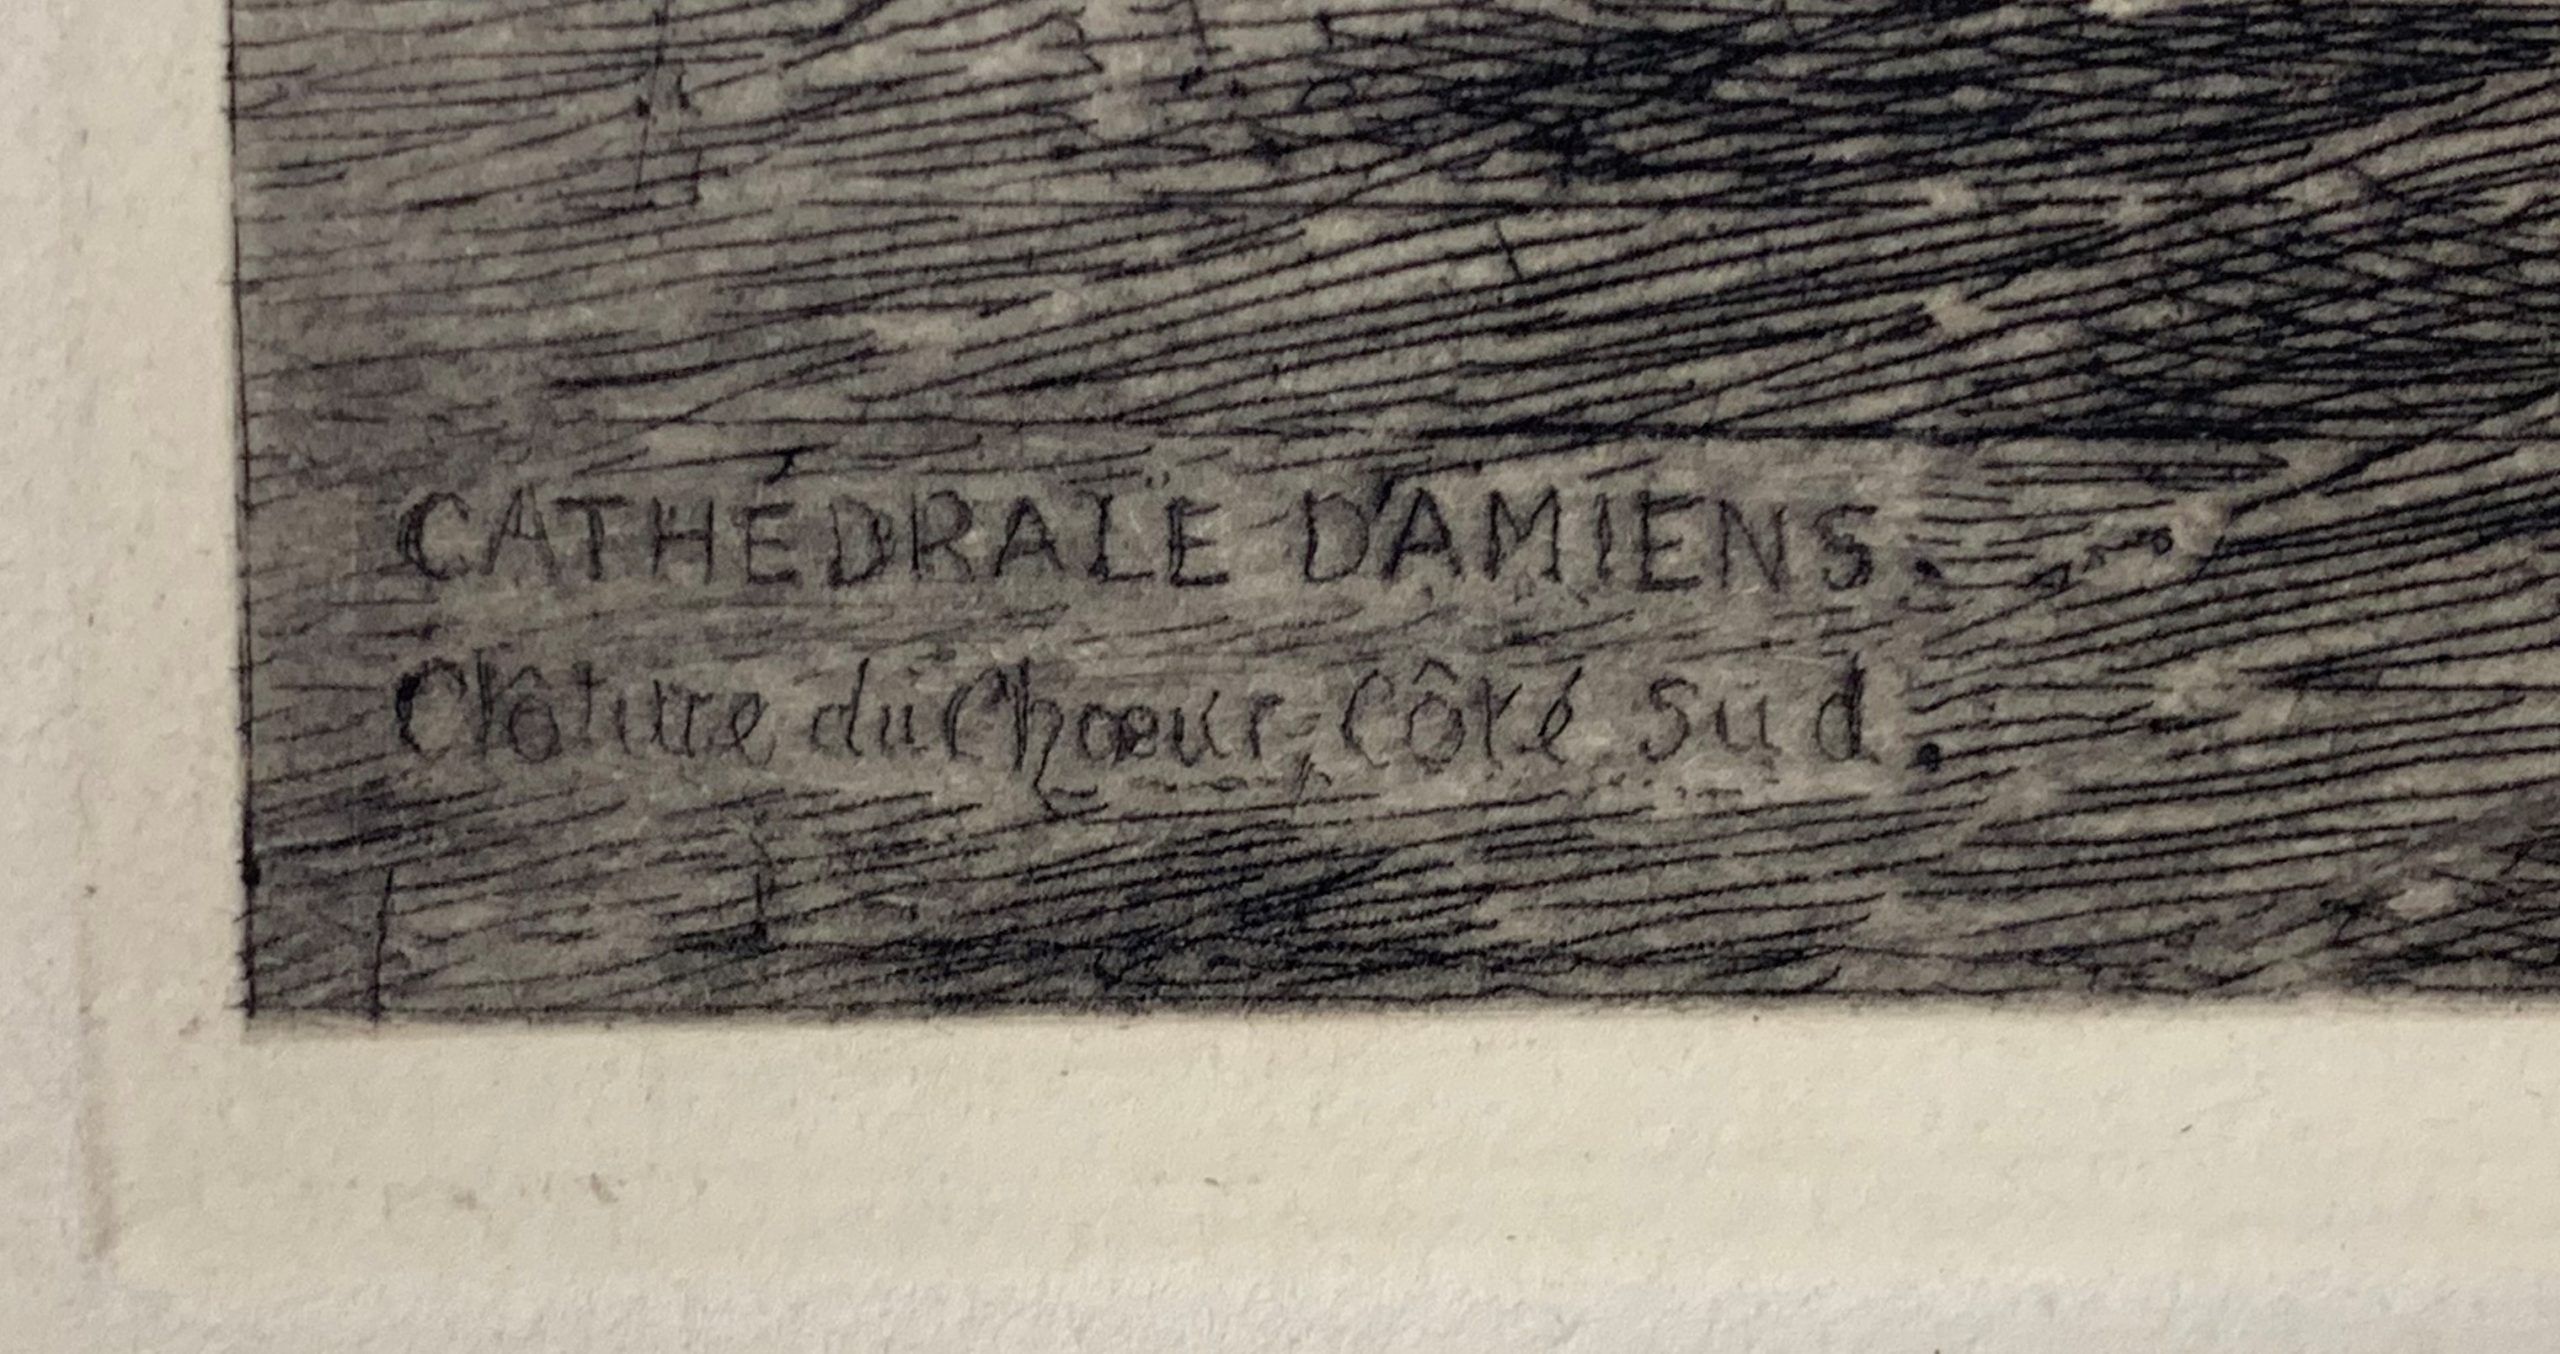 CATHÉDRALE D'AMIENS.
Clôture du Chœur, Côté Sud.